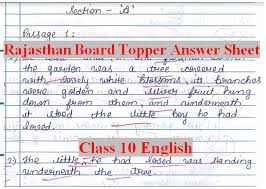 Section - 'A'
Passage 1:
Rajasthan Board Topper Answer Sheet
the garden was a tree covered
with lovely white blossoms, its branches
were golden and silver fruit hung
down from them, and underneath
it stood the little boy he had
loved.
Class 10 English
2) The little he had loved was standing
underneath the tree.